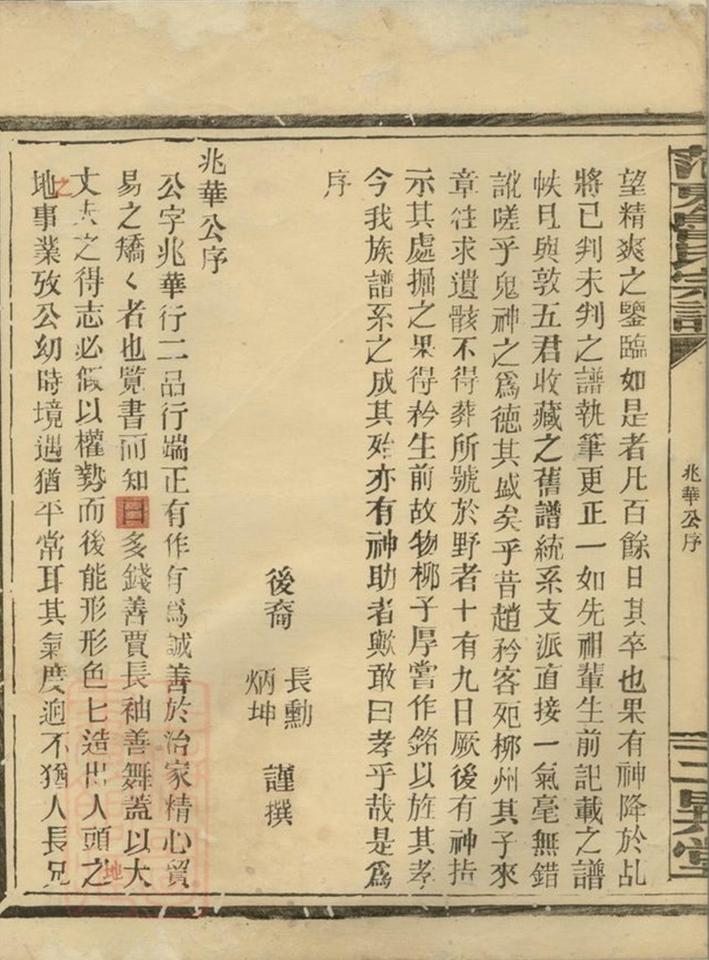 望精爽之鑒臨如是者凡百餘日其卒也果有神降於乩
將已判未判之譜執筆更正一如先祖輩生前記載之譜
帙且與敦五君收藏之舊譜統系支派直接一氣毫無錯
訛嗟乎鬼神之為德其盛矣乎昔趙矜客死柳州其子來
章往求遺骸不得葬所號於野者十有九日厥後有神指
示其處掘之果得矜生前故物柳子厚嘗作銘以旌其孝
今我族譜系之成其殆亦有神助者歟敢曰孝乎哉是為
序
後裔 長勳 炳坤 謹撰
兆華公序
公字兆華行二品行端正有作有為誠善於治家精心貿
易之矯〻者也覽書而知曰多錢善賈長袖善舞蓋以大
丈夫之得志必假以權勢而後能形形色〻造出人頭之
地之事業攷公幼時境遇猶平常耳其氣度迥不猶人長兄
兆華公序
宗譜
三異堂